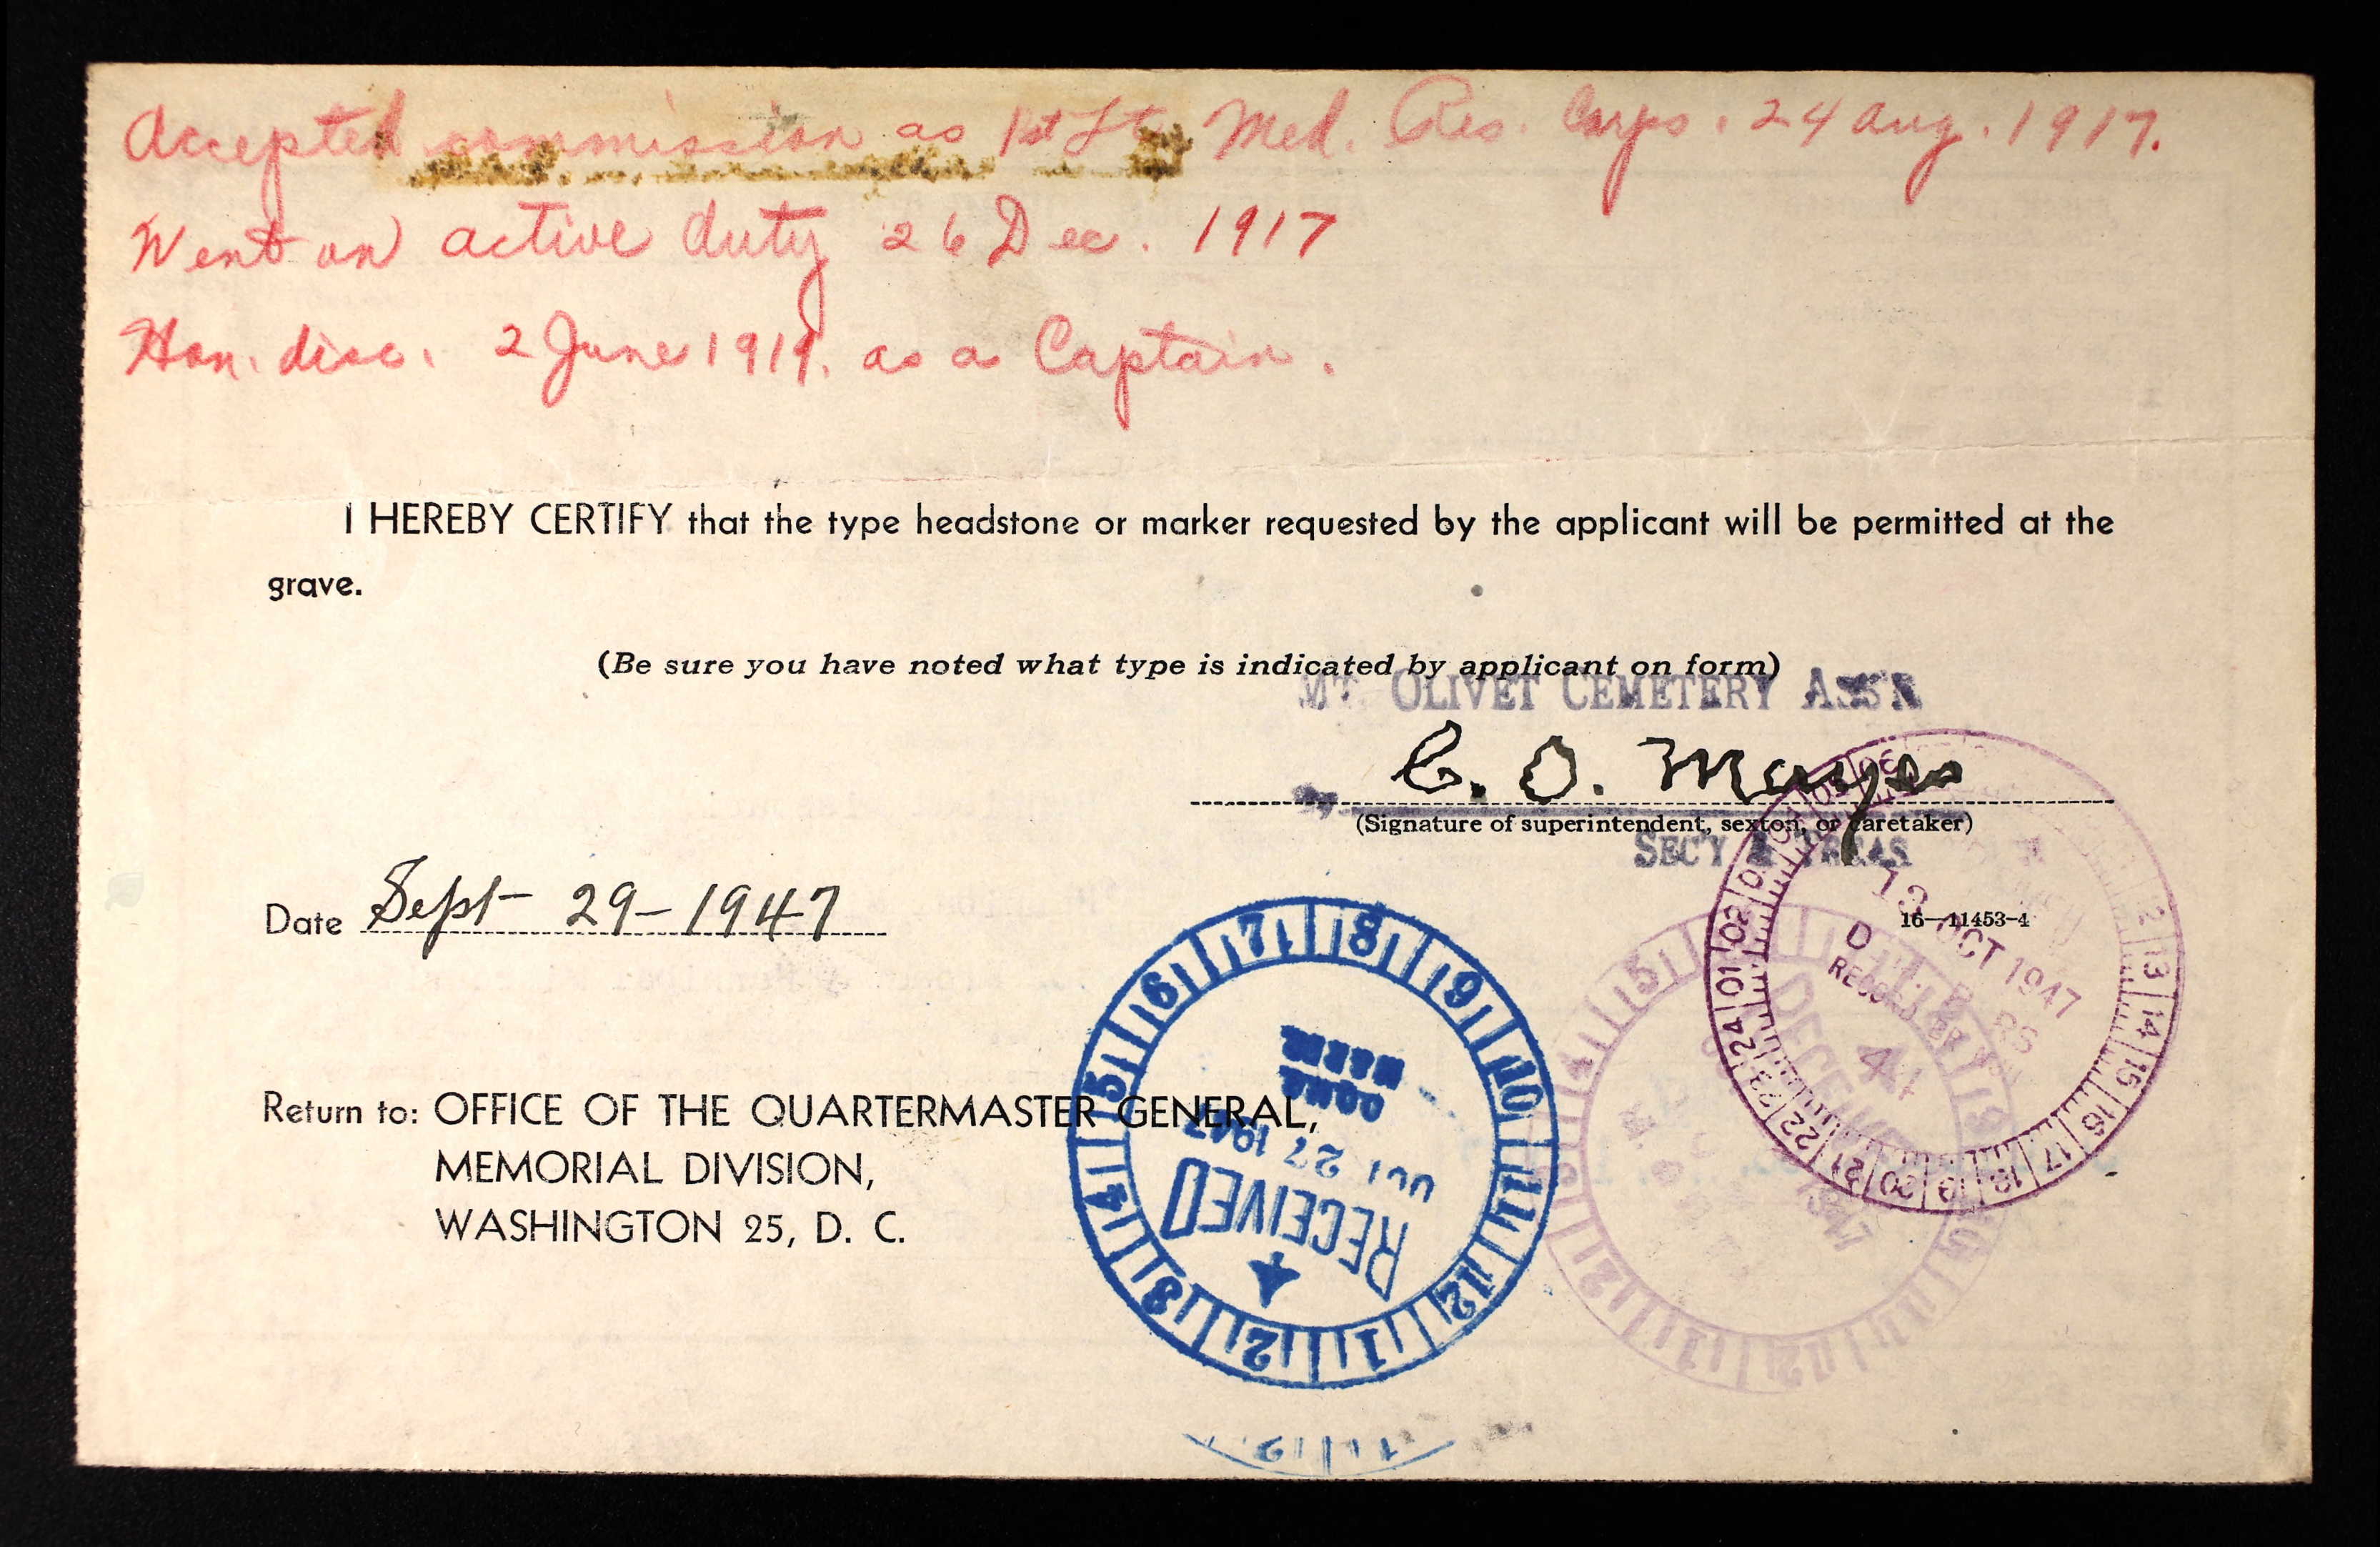 Accepted commission as 1st Lt. Med. Res. Corps. 24 Aug. 1917.
Went on active duty 26 Dec. 1917
Hon. disc. 2 June 1919. as a Captain.
I HEREBY CERTIFY that the type headstone or marker requested by the applicant will be permitted at the
grave.
(Be sure you have noted what type is indicated by applicant on form)
MT. OLIVET CEMETERY ASS'N
C. O. Mayes
(Signature of superintendent, sexton, or caretaker)
SEC'Y & TREAS
Date Sept 29-1947
16—11453-4
13 OCT 1947
Return to: OFFICE OF THE QUARTERMASTER GENERAL,
MEMORIAL DIVISION,
WASHINGTON 25, D. C.
RECEIVED
OCT 27 1947
OQMG
5 6 7 8 9 10 11 12 1 2 3 4
01 02 12 13 14 15 16 17 18 19 20 21 22 23 24